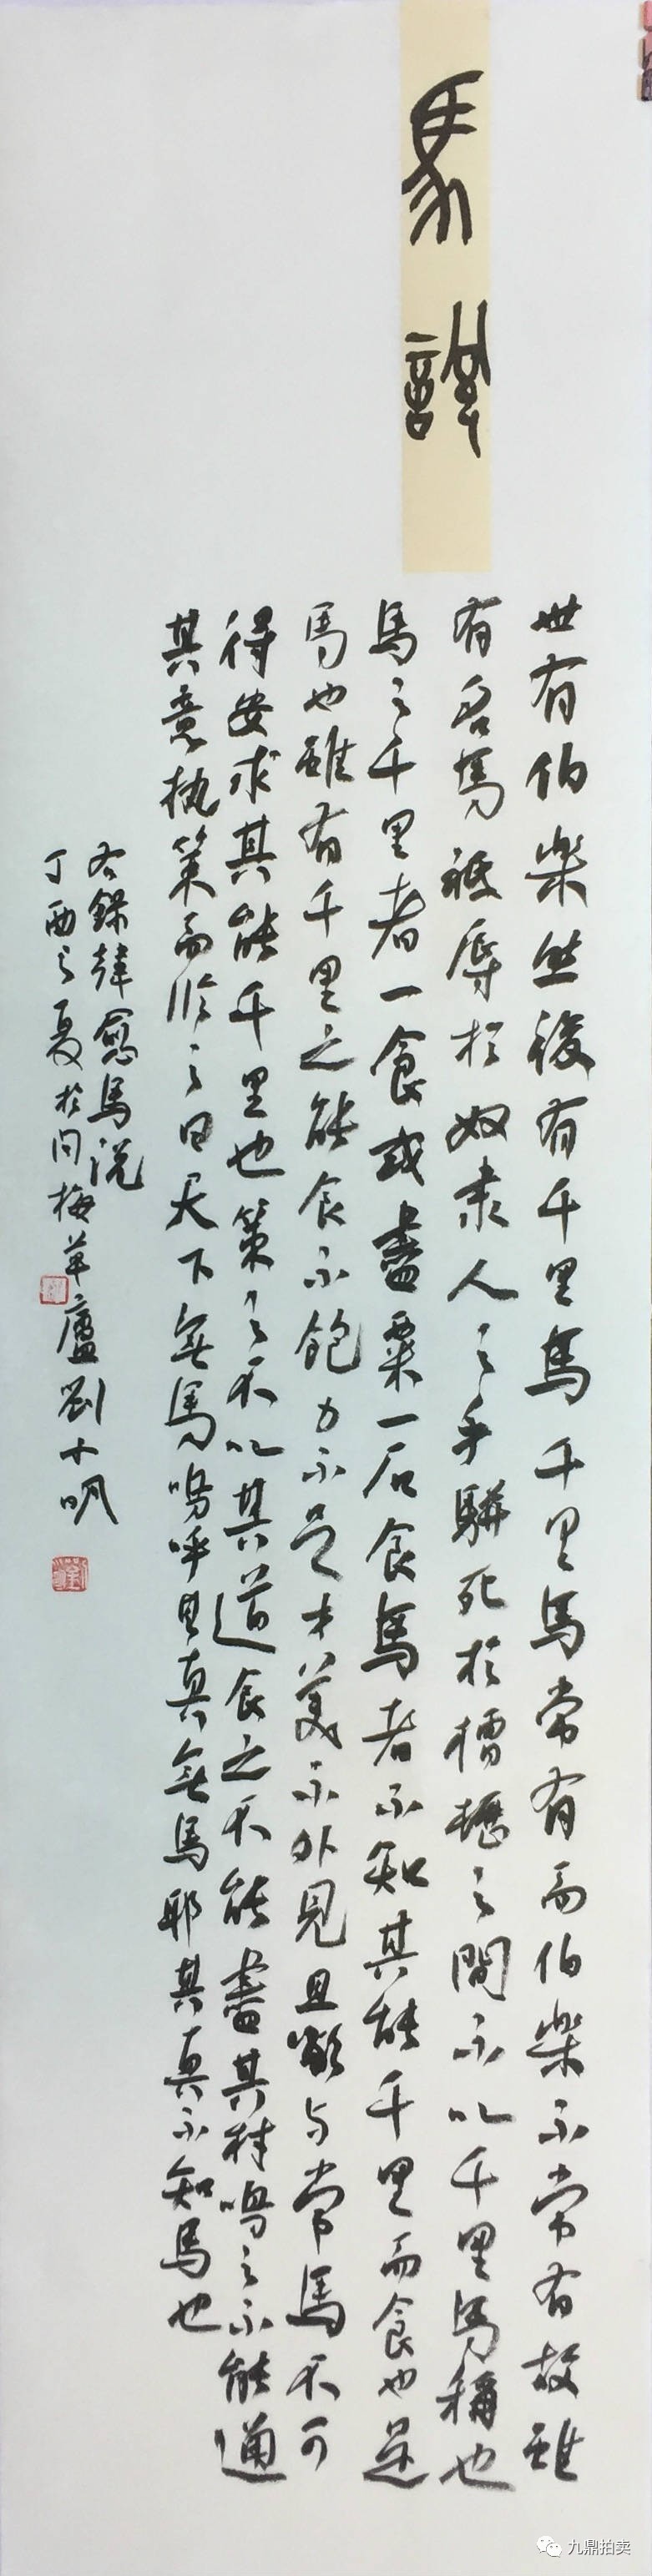 馬說
世有伯樂然後有千里馬千里馬常有而伯樂不常有故雖
有名馬祗辱於奴隸人之手駢死於槽櫪之間不以千里馬稱也
馬之千里者一食或盡粟一石食馬者不知其能千里而食也是
馬也雖有千里之能食不飽力不足才美不外見且欲与常馬不可
得安求其能千里也策之不以其道食之不能盡其材鳴之不能通
其意執策而臨之曰天下無馬嗚呼其真無馬耶其真不知馬也
右錄韓愈馬説
丁酉之夏於問梅草廬劉小明
九鼎拍卖